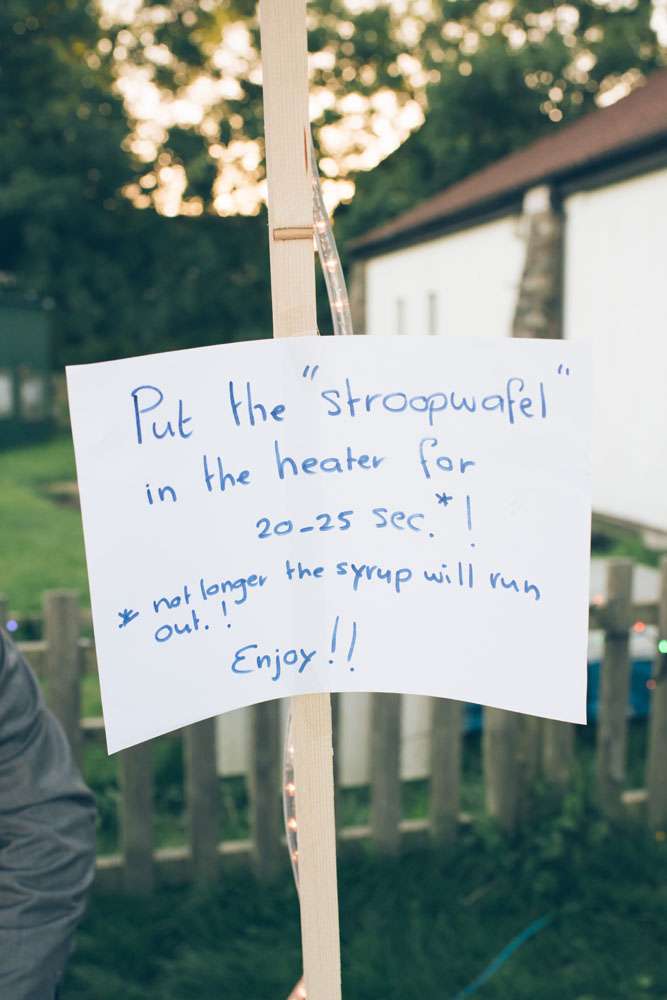 Put the "stroopwafel"
in the heater for
20-25 sec.*!
* not longer the syrup will run
out.!
Enjoy!!